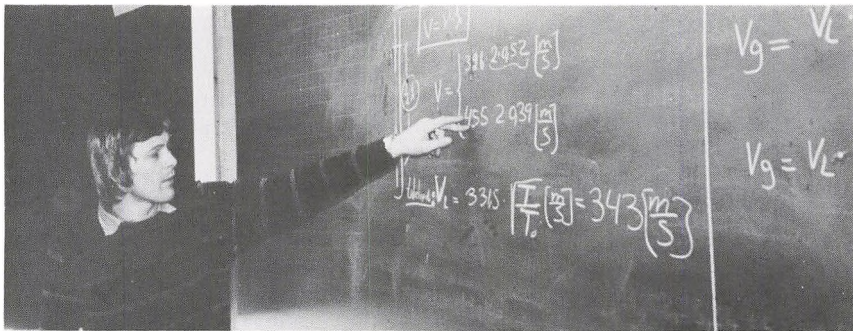 V =
396 · 2 · 0,52 [m/S]
V =
455 · 2 · 0,39 [m/S]
V_L = 331,5 · √T/T₀ [m/S] = 343 [m/S]
V_g = V_L ·
V_g = V_L ·